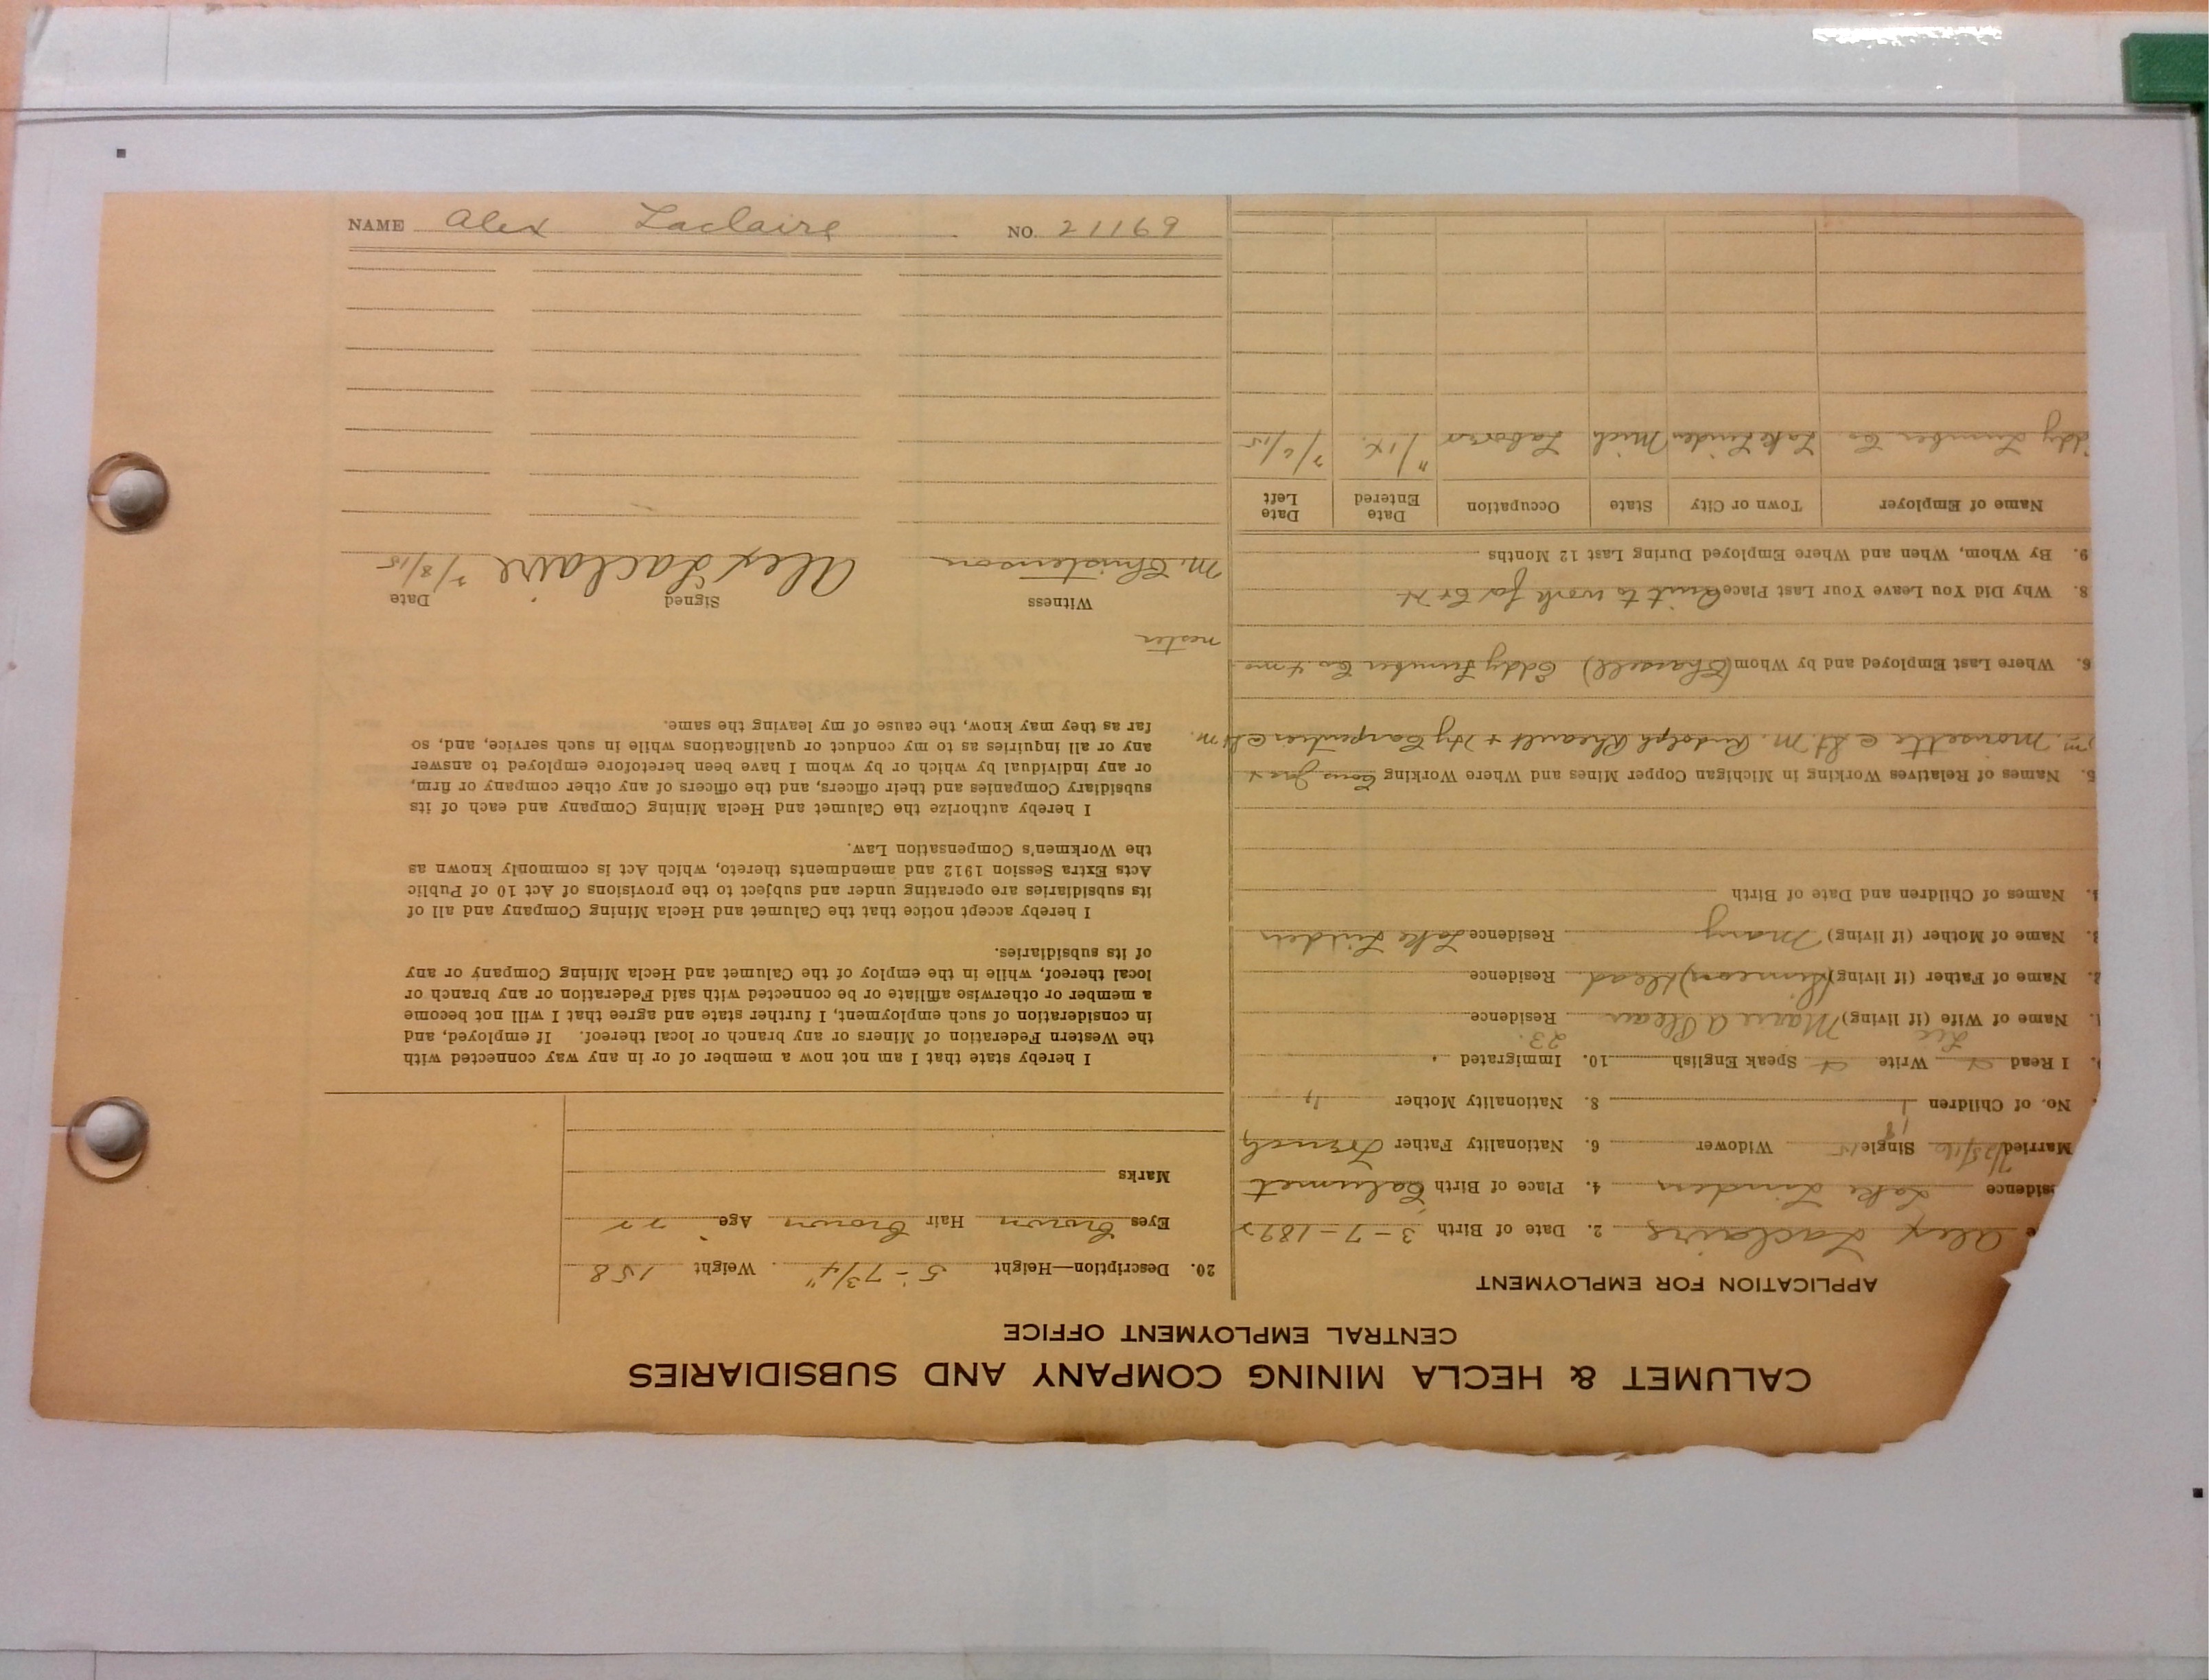 CALUMET & HECLA MINING COMPANY AND SUBSIDIARIES
CENTRAL EMPLOYMENT OFFICE
APPLICATION FOR EMPLOYMENT
Alex Laclaire 2. Date of Birth 3-7-1893
Residence Lake Linden 4. Place of Birth Calumet
Married 7/25/16 Single Widower 6. Nationality Father French
No. of Children 1 8. Nationality Mother "
I Read Write Speak English 10. Immigrated
Name of Wife (if living) Marie A Residence
Name of Father (if living) (Simeon) dead Residence
Name of Mother (if living) Mary Residence Lake Linden
Names of Children and Date of Birth
5. Names of Relatives Working in Michigan Copper Mines and Where Working
Monsette @ St. M. Rudolph Rheault + Hy Carpentier @ St m.
6. Where Last Employed and by Whom (Chassell) Eddy Lumber Co
8. Why Did You Leave Your Last Place Quit to work for C+H
9. By Whom, When and Where Employed During Last 12 Months
Name of Employer Town or City State Occupation Date Entered Date Left
Eddy Lumber Co Lake Linden Mich Laborer 11/14 7/6/15
20. Description—Height 5-7 3/4" Weight 158
Eyes Brown Hair Brown Age 22
Marks
I hereby state that I am not now a member of or in any way connected with
the Western Federation of Miners or any branch or local thereof. If employed, and
in consideration of such employment, I further state and agree that I will not become
a member or otherwise affiliate or be connected with said Federation or any branch or
local thereof, while in the employ of the Calumet and Hecla Mining Company or any
of its subsidiaries.
I hereby accept notice that the Calumet and Hecla Mining Company and all of
its subsidiaries are operating under and subject to the provisions of Act 10 of Public
Acts Extra Session 1912 and amendments thereto, which Act is commonly known as
the Workmen's Compensation Law.
I hereby authorize the Calumet and Hecla Mining Company and each of its
subsidiary Companies and their officers, and the officers of any other company or firm,
or any individual by which or by whom I have been heretofore employed to answer
any or all inquiries as to my conduct or qualifications while in such service, and, so
far as they may know, the cause of my leaving the same.
Witness Signed Date
M. Christenson Alex Laclaire 7/8/15
NAME Alex Laclaire NO. 21169